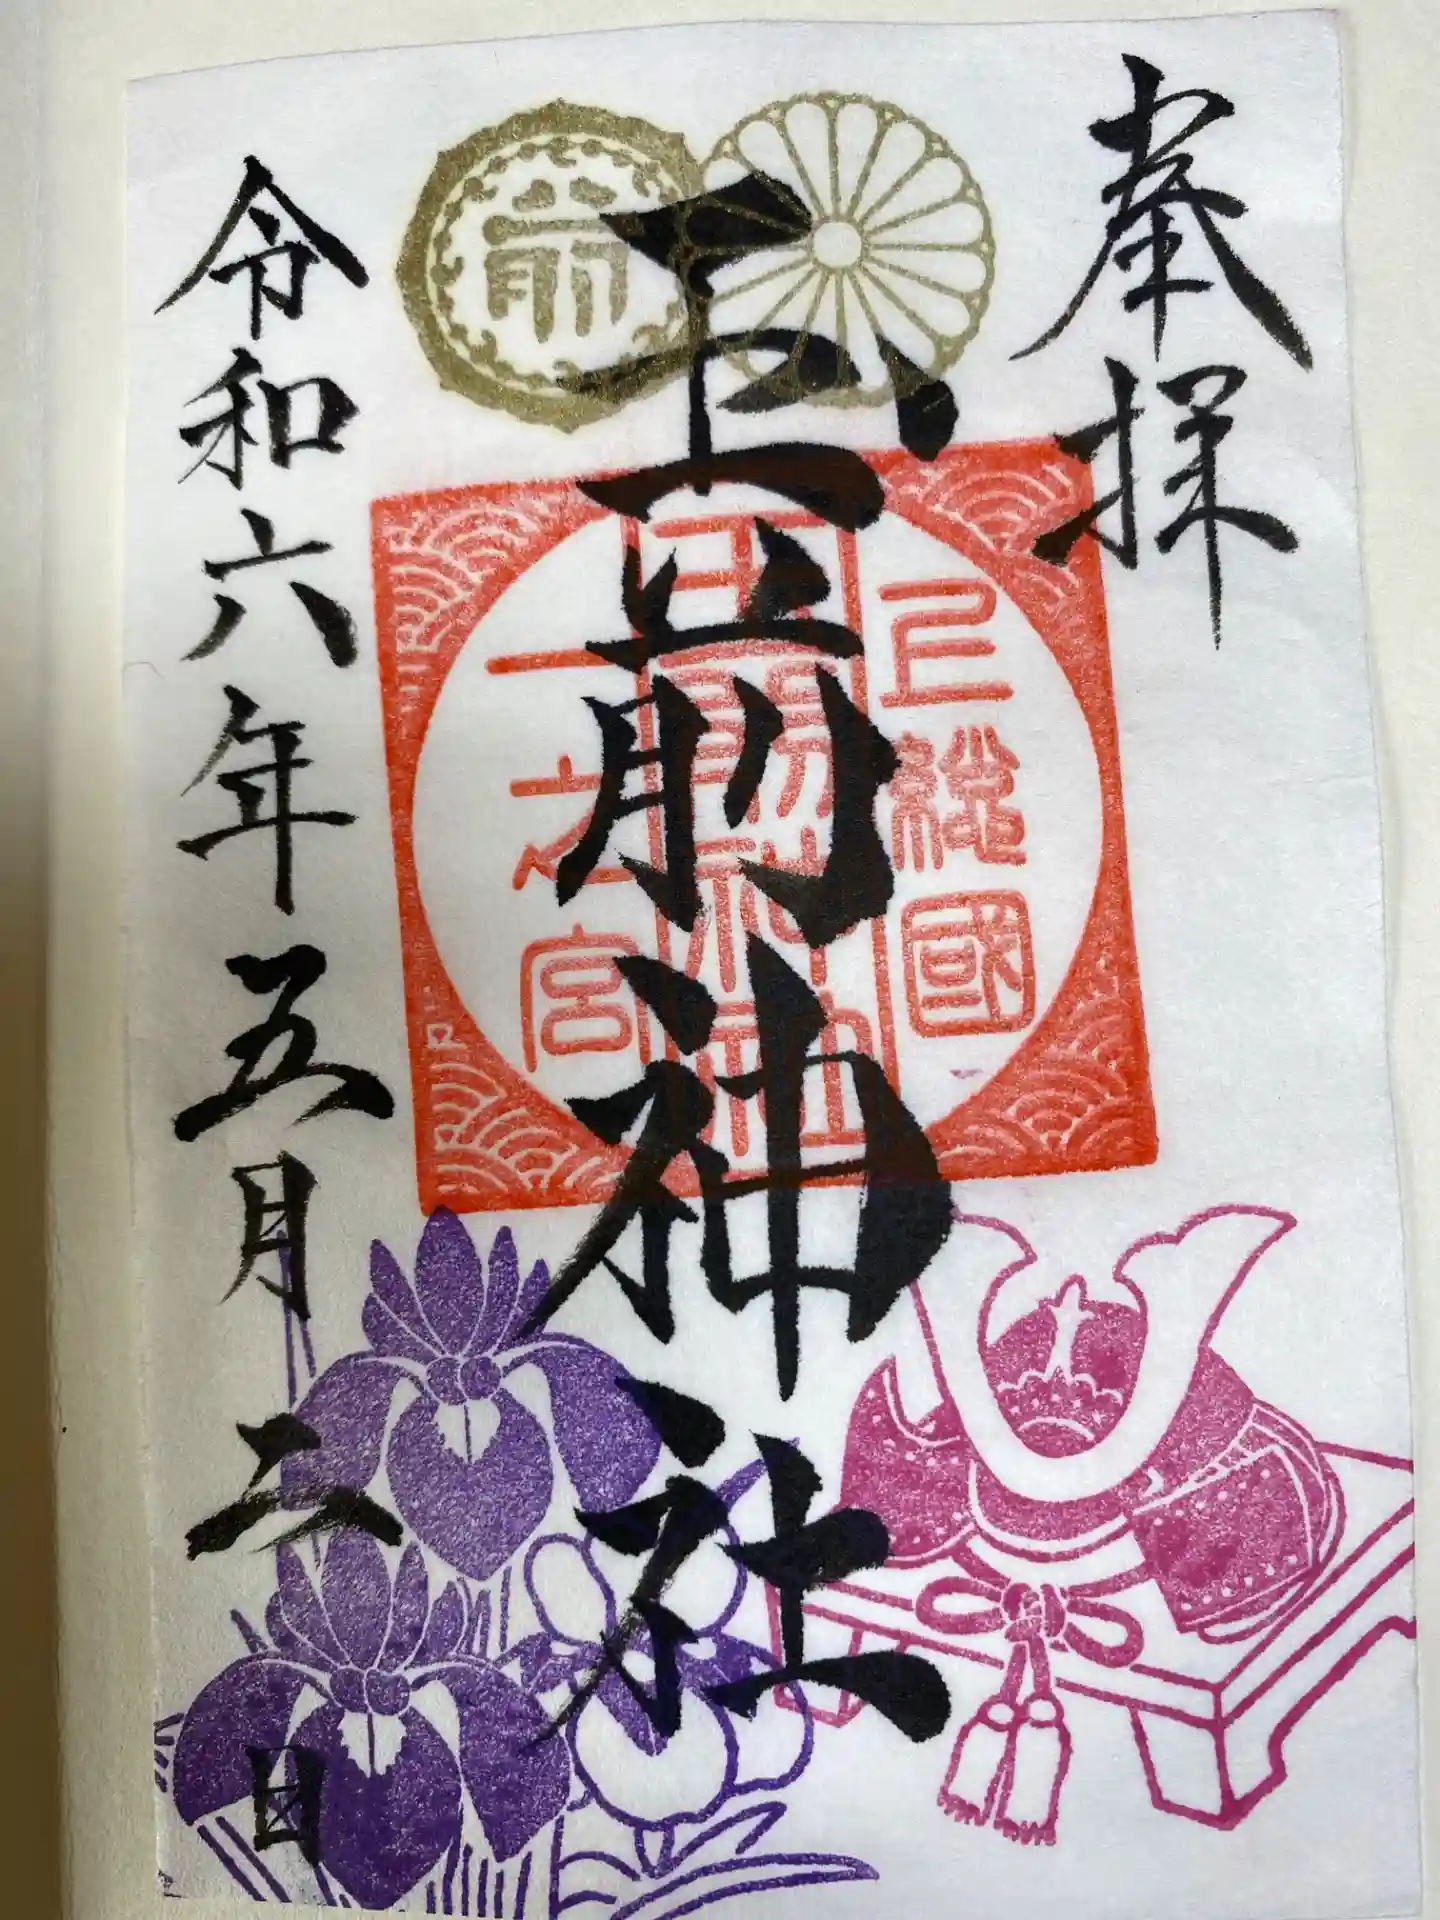 奉拝
前
玉前神社
上総國
玉前神社
一之宮
令和六年五月二日